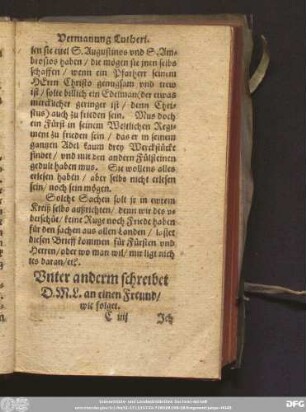 Vermanung Lutheri.
sen sie eitel S. Augustinos vnd S. Am-
brosios haben / die mögen sie jnen selbs
schaffen / wenn ein Pfarherr seinem
HErrn Christo genugsam vnd trew
ist / solte billich ein Edelman (der etwas
mercklicher geringer ist / denn Chri-
stus) auch zu frieden sein. Mus doch
ein Fürst in seinem Weltlichen Regi-
ment zu frieden sein / das er in seinem
gantzen Adel kaum drey Werckstücke
findet / vnd mit den andern Füllsteinen
gedult haben mus. Sie wollens alles
erlesen haben / aber selbs nicht erlesen
sein / noch sein mögen.
Solche Sachen solt jr in ewrem
Kreiß selbs außrichten / denn wir des vberschüt / keine Ruge noch Friede haben
für den sachen aus allen Landen / lasset
diesen Brieff kommen für Fürsten vnd
Herren / oder wo man wil / mir ligt auch
nichts daran / etc.
Vnter anderm schreibet
D. M. L. an einen Freund /
wie folget.
C iiij Ich